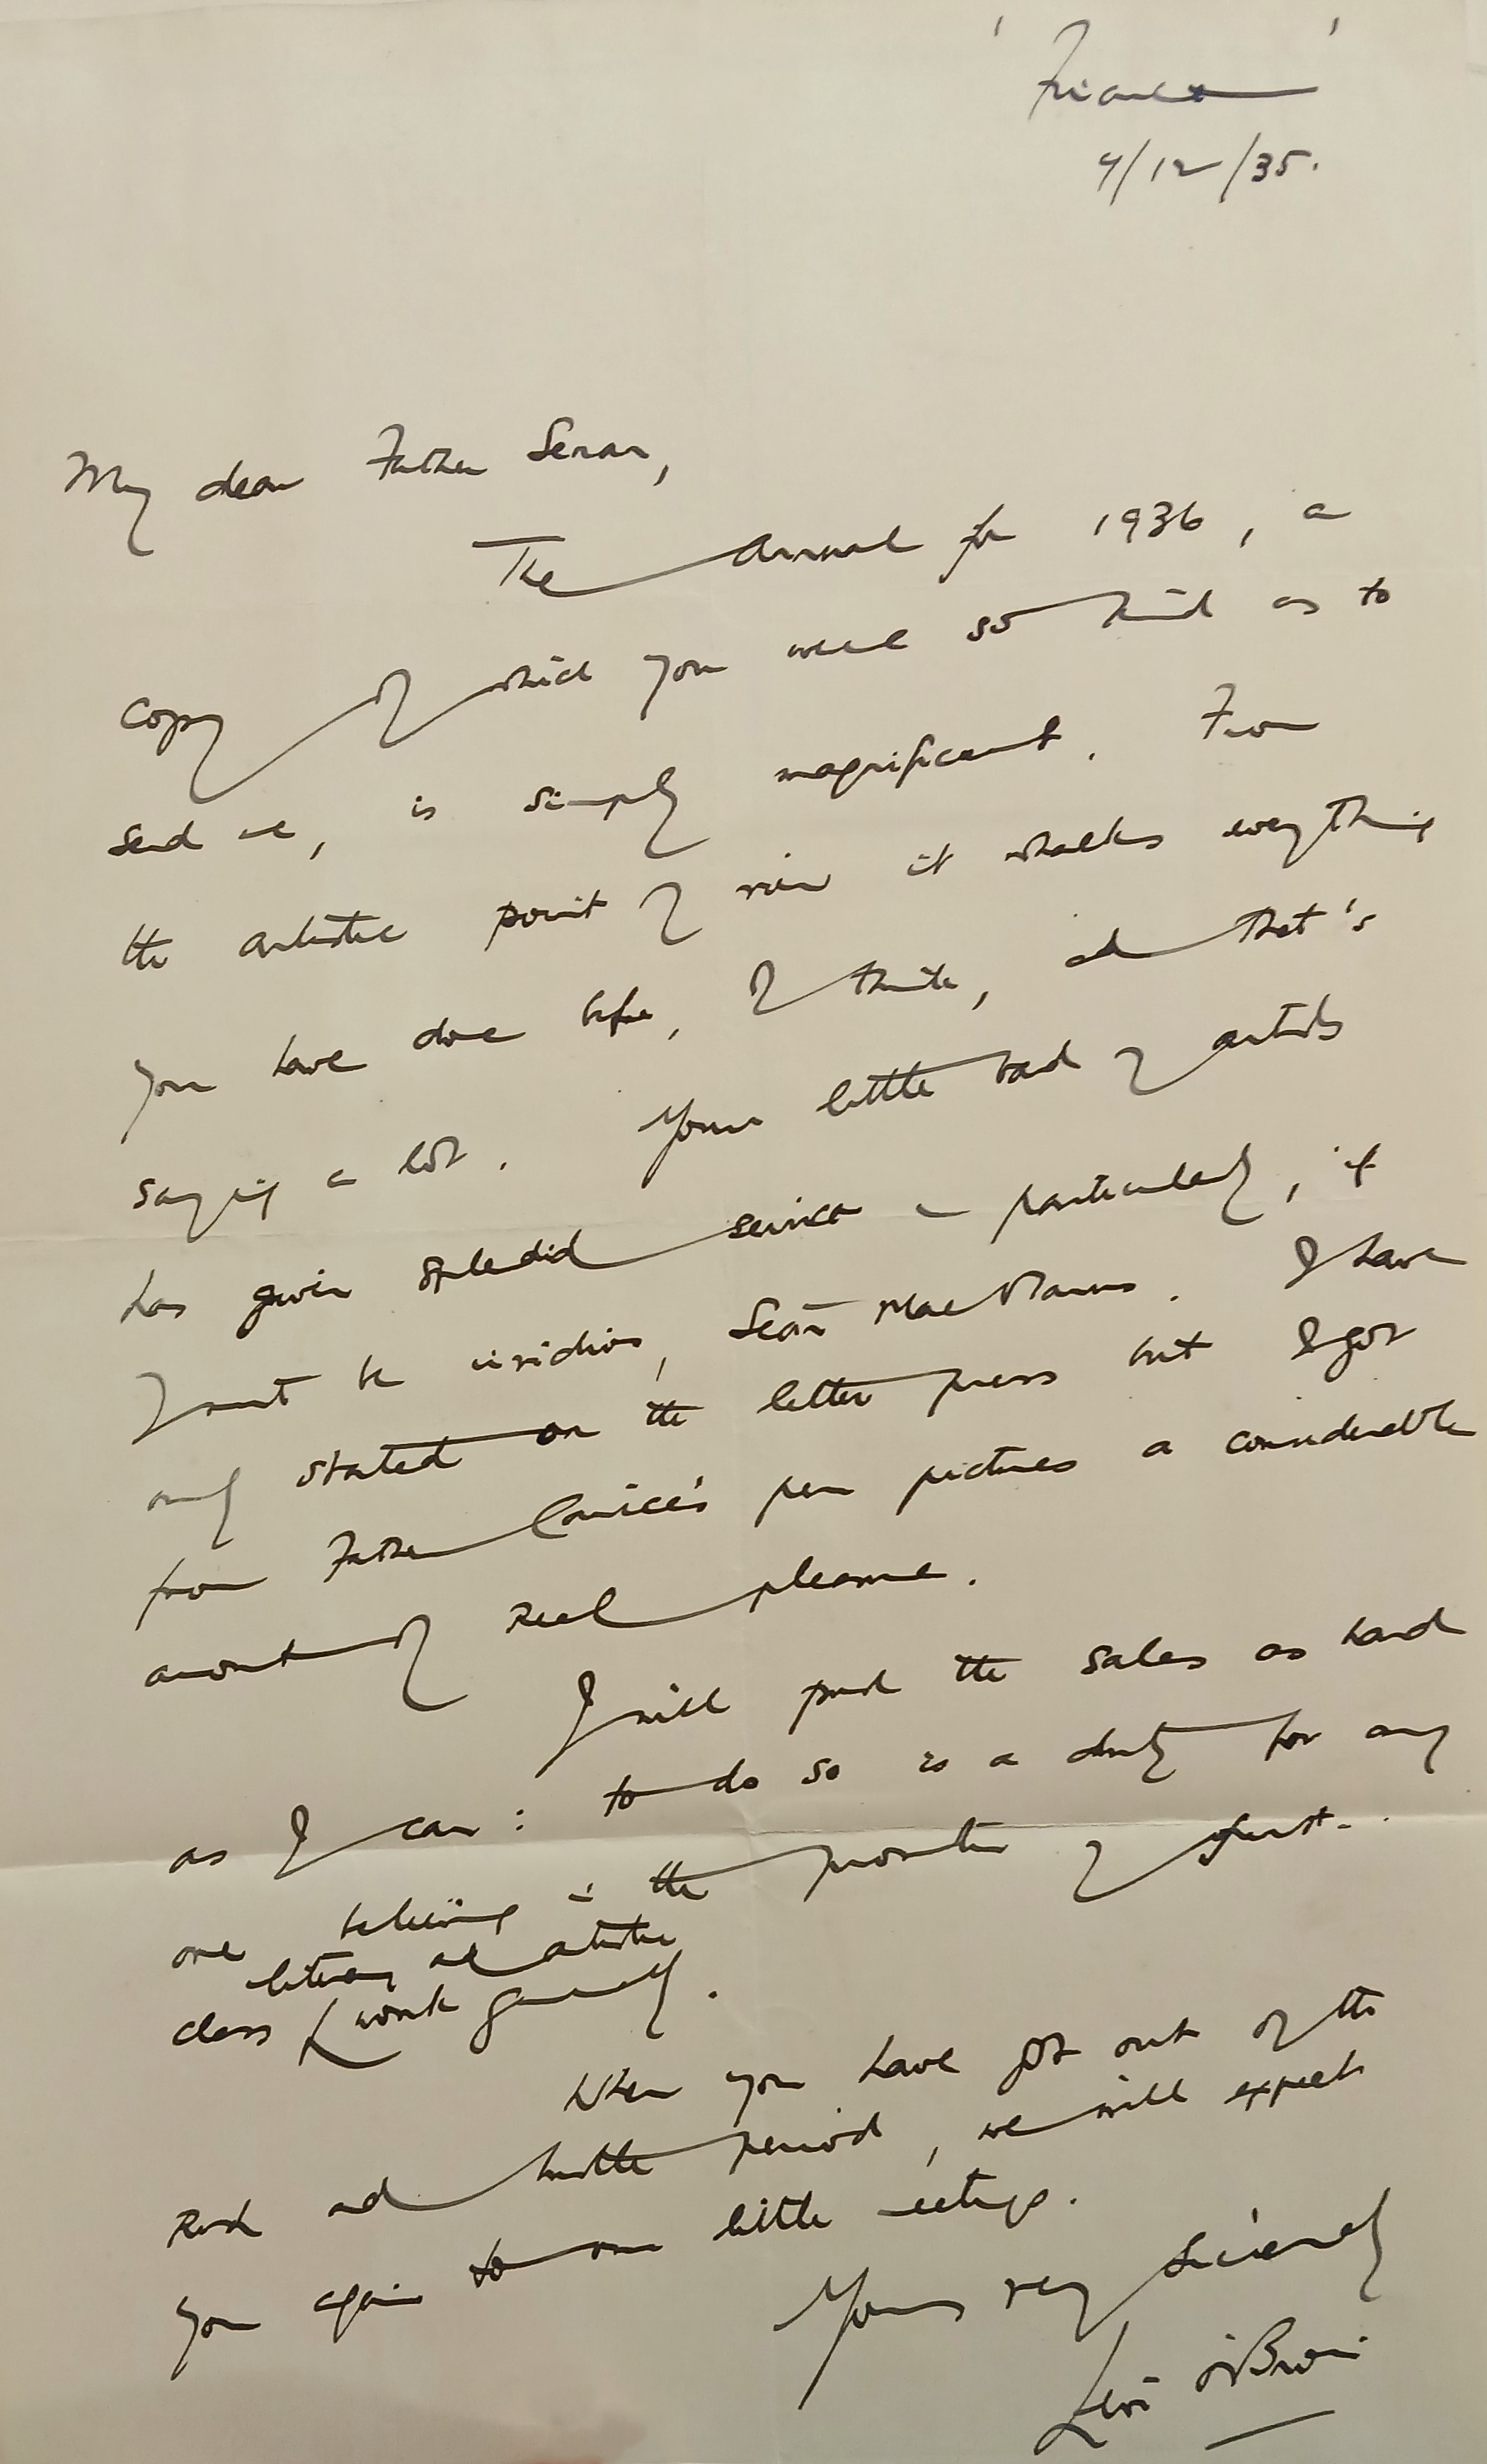 4/12/35.
My dear Father Senan,
The Annual for 1936, a
copy of which you were so kind as to
send me, is simply magnificent. From
the artistic point of view it whacks everything
you have done before, I think, and that's
saying a lot. Your little band of artists
has given splendid service – particularly, if
I must be invidious, Seán Mac Manus. I have
only started on the letter press but I got
from Father Canice's pen pictures a considerable
amount of real pleasure.
I will push the sales as hard
as I can: to do so is a duty for any
one believing in the promotion of first-
class literary and artistic work generally.
When you have got out of the
Rush and hustle period, we will expect
you again to our little meetings.
Yours very sincerely
León Ó Broin